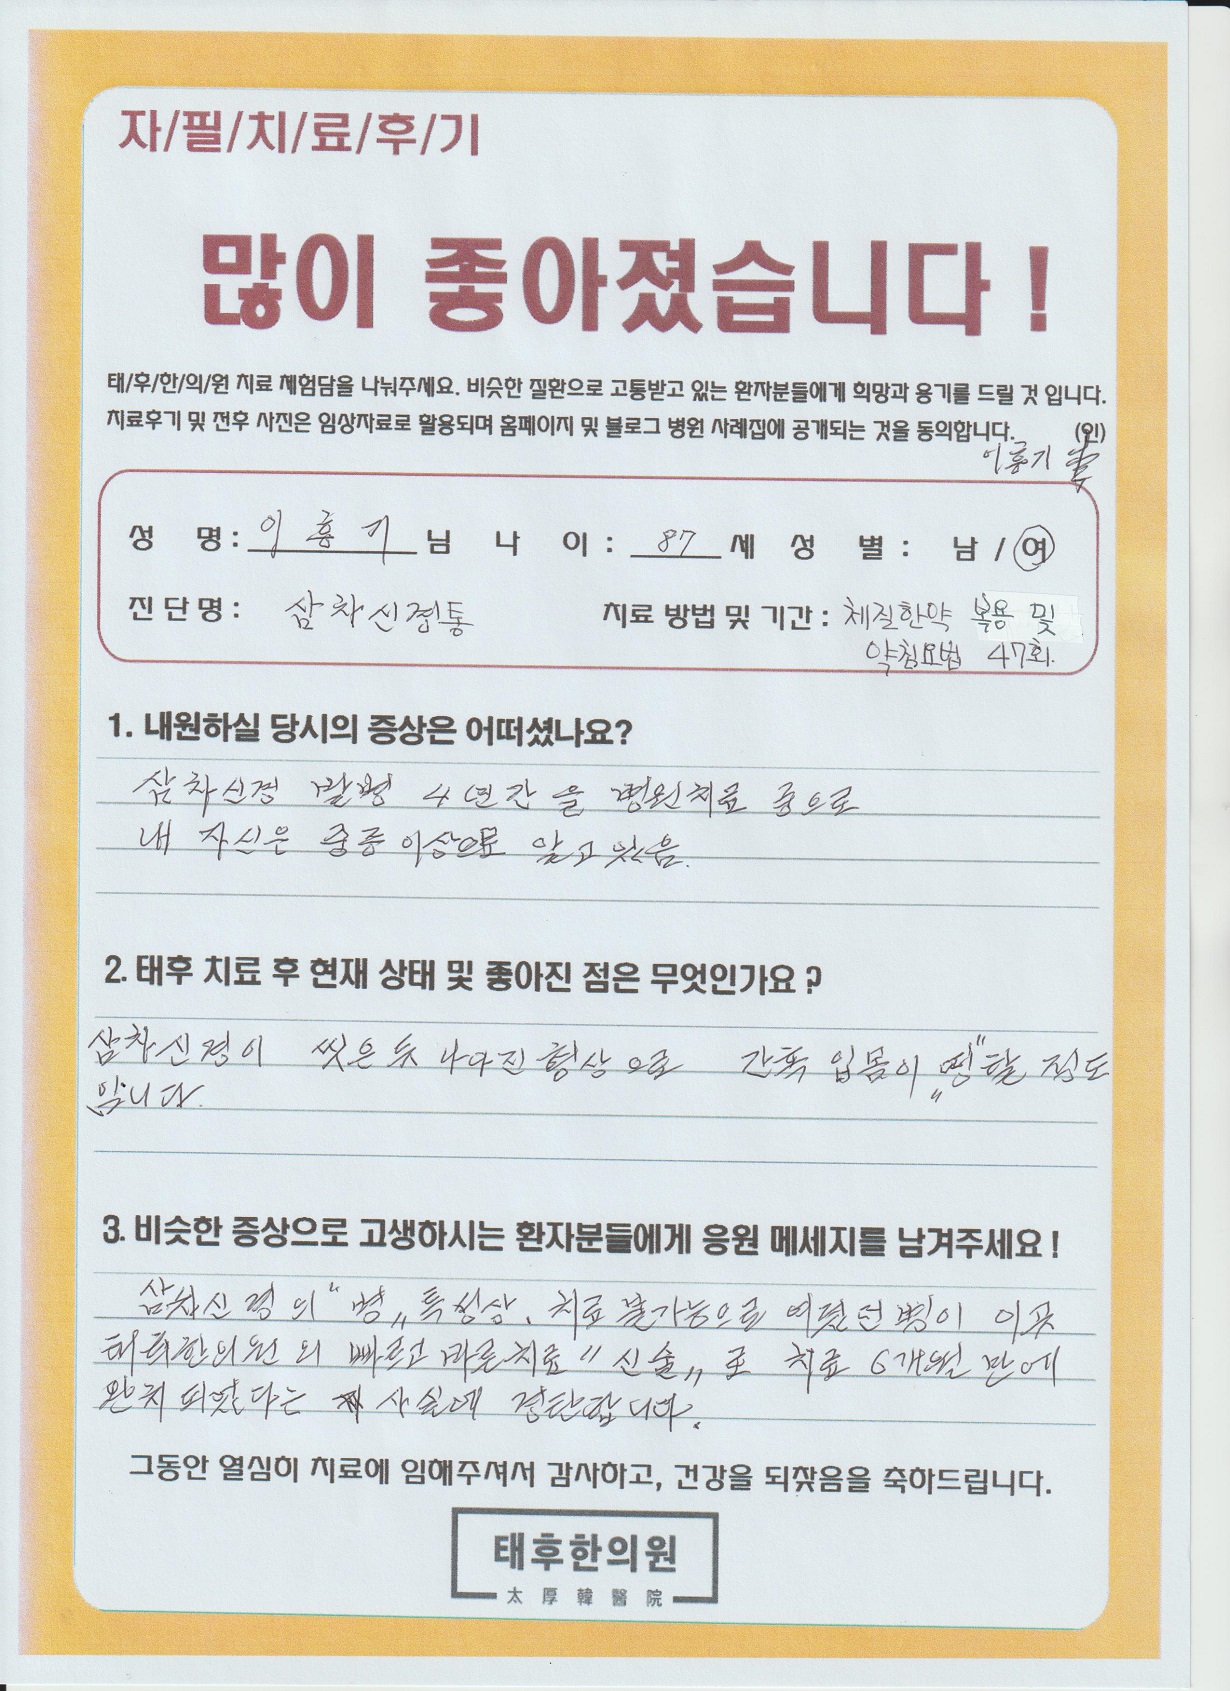 자/필/치/료/후/기
많이 좋아졌습니다 !
태/후/한/의/원 치료 체험담을 나눠주세요. 비슷한 질환으로 고통받고 있는 환자분들에게 희망과 용기를 드릴 것 입니다.
치료후기 및 전후 사진은 임상자료로 활용되며 홈페이지 및 블로그 병원 사례집에 공개되는 것을 동의합니다. (인)
이흥기
성 명 : 이 흥 기 님 나 이 : 87 세 성 별 : 남 / 여
진 단 명 : 삼차신경통 치료 방법 및 기간 : 체질한약 복용 및
약침요법 47회.
1. 내원하실 당시의 증상은 어떠셨나요?
삼차신경 발병 4년간을 병원치료 중으로
내 자신은 중증이상으로 알고있음.
2. 태후 치료 후 현재 상태 및 좋아진 점은 무엇인가요 ?
삼차신경이 씻은듯 나아진 형상으로 간혹 입몸이 "띵"할 정도
입니다.
3. 비슷한 증상으로 고생하시는 환자분들에게 응원 메세지를 남겨주세요 !
삼차신경의 "병" 특성상, 치료불가능으로 여겼던병이 이곳
태후한의원의 빠르고 바른치료 "신술"로 치료 6개월만에
완치되었다는 사실에 경탄합니다.
그동안 열심히 치료에 임해주셔서 감사하고, 건강을 되찾음을 축하드립니다.
태후한의원
太厚韓醫院